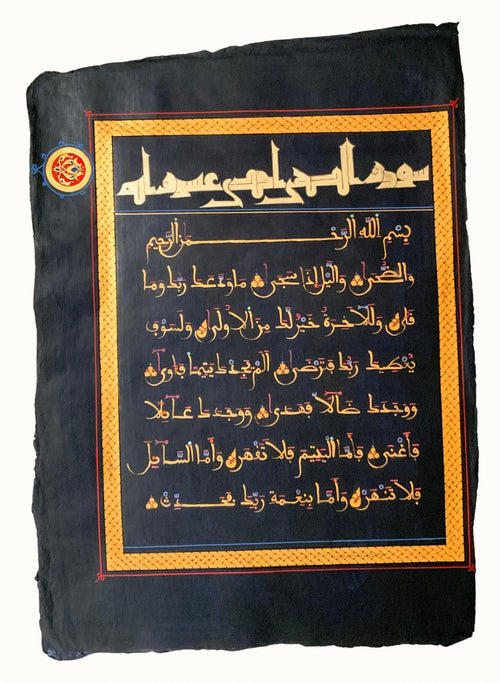 سورة الضحى احدى عشرة اية
بِسْمِ اللَّهِ الرَّحْمَٰنِ الرَّحِيمِ
وَالضُّحَىٰ وَاللَّيْلِ إِذَا سَجَىٰ مَا وَدَّعَكَ رَبُّكَ وَمَا
قَلَىٰ وَلَلْآخِرَةُ خَيْرٌ لَّكَ مِنَ الْأُولَىٰ وَلَسَوْفَ
يُعْطِيكَ رَبُّكَ فَتَرْضَىٰ أَلَمْ يَجِدْكَ يَتِيمًا فَآوَىٰ
وَوَجَدَكَ ضَالًّا فَهَدَىٰ وَوَجَدَكَ عَائِلًا
فَأَغْنَىٰ فَأَمَّا الْيَتِيمَ فَلَا تَقْهَرْ وَأَمَّا السَّائِلَ
فَلَا تَنْهَرْ وَأَمَّا بِنِعْمَةِ رَبِّكَ فَحَدِّثْ